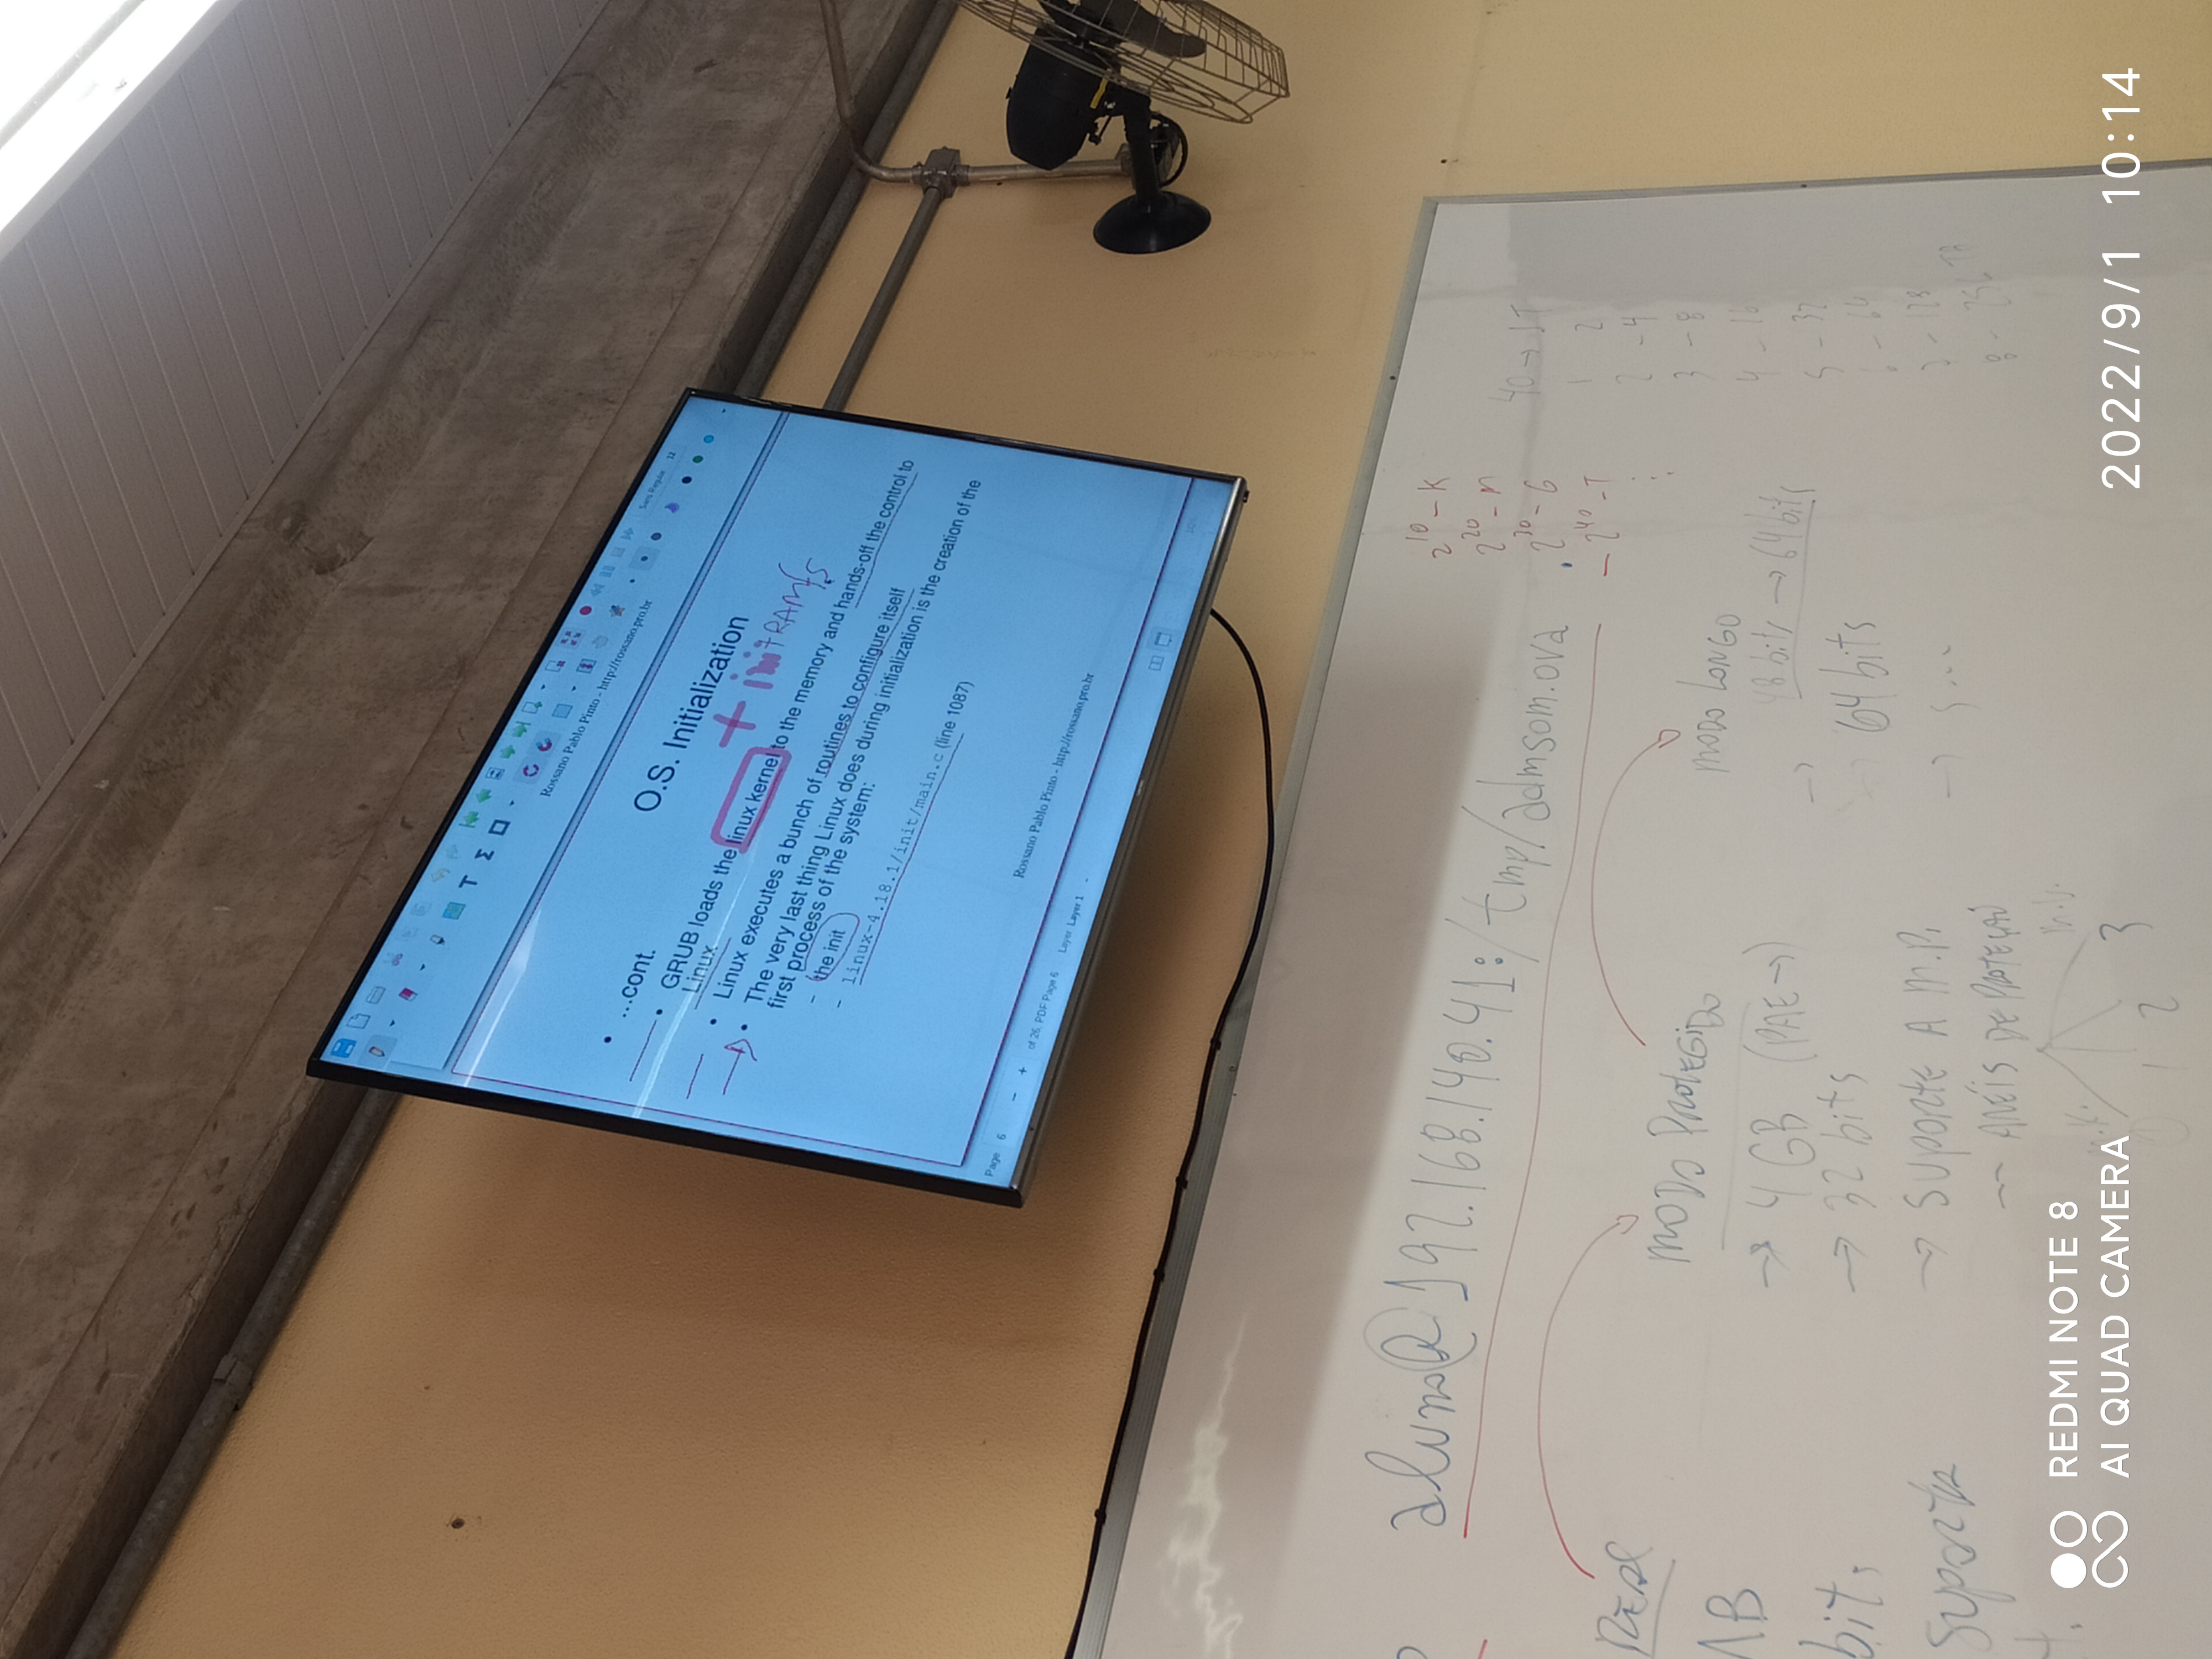 Sans Regular 12
Rossano Pablo Pinto - http://rossano.pro.br
O.S. Initialization
+ initRAMfS
• ...cont.
• GRUB loads the linux kernel to the memory and hands-off the control to
Linux
• Linux executes a bunch of routines to configure itself
• The very last thing Linux does during initialization is the creation of the
first process of the system:
– the init
– linux-4.18.1/init/main.c (line 1087)
Rossano Pablo Pinto - http://rossano.pro.br
Page 6 of 26, PDF Page 6 Layer Layer 1
aluno@192.168.140.41:/tmp/admsom.ova
2^10 – K
2^20 – M
2^30 – G
2^40 – T
40 → 1T
1 2
2 – 4
3 – 8
4 – 16
5 – 32
6 – 64
7 – 128
8 – 256 TB
REAL
bits
Suporte
MODO PROTEGIDO
→ 4 GB (PAE→)
→ 32 bits
→ SUPORTE A M.P.
-- ANÉIS DE PROTEÇÃO
M.K. M.U.
0 1 2 3
MODO LONGO
48 bits → 64 bits
→ 64 bits
→ S...
REDMI NOTE 8
AI QUAD CAMERA
2022/9/1 10:14